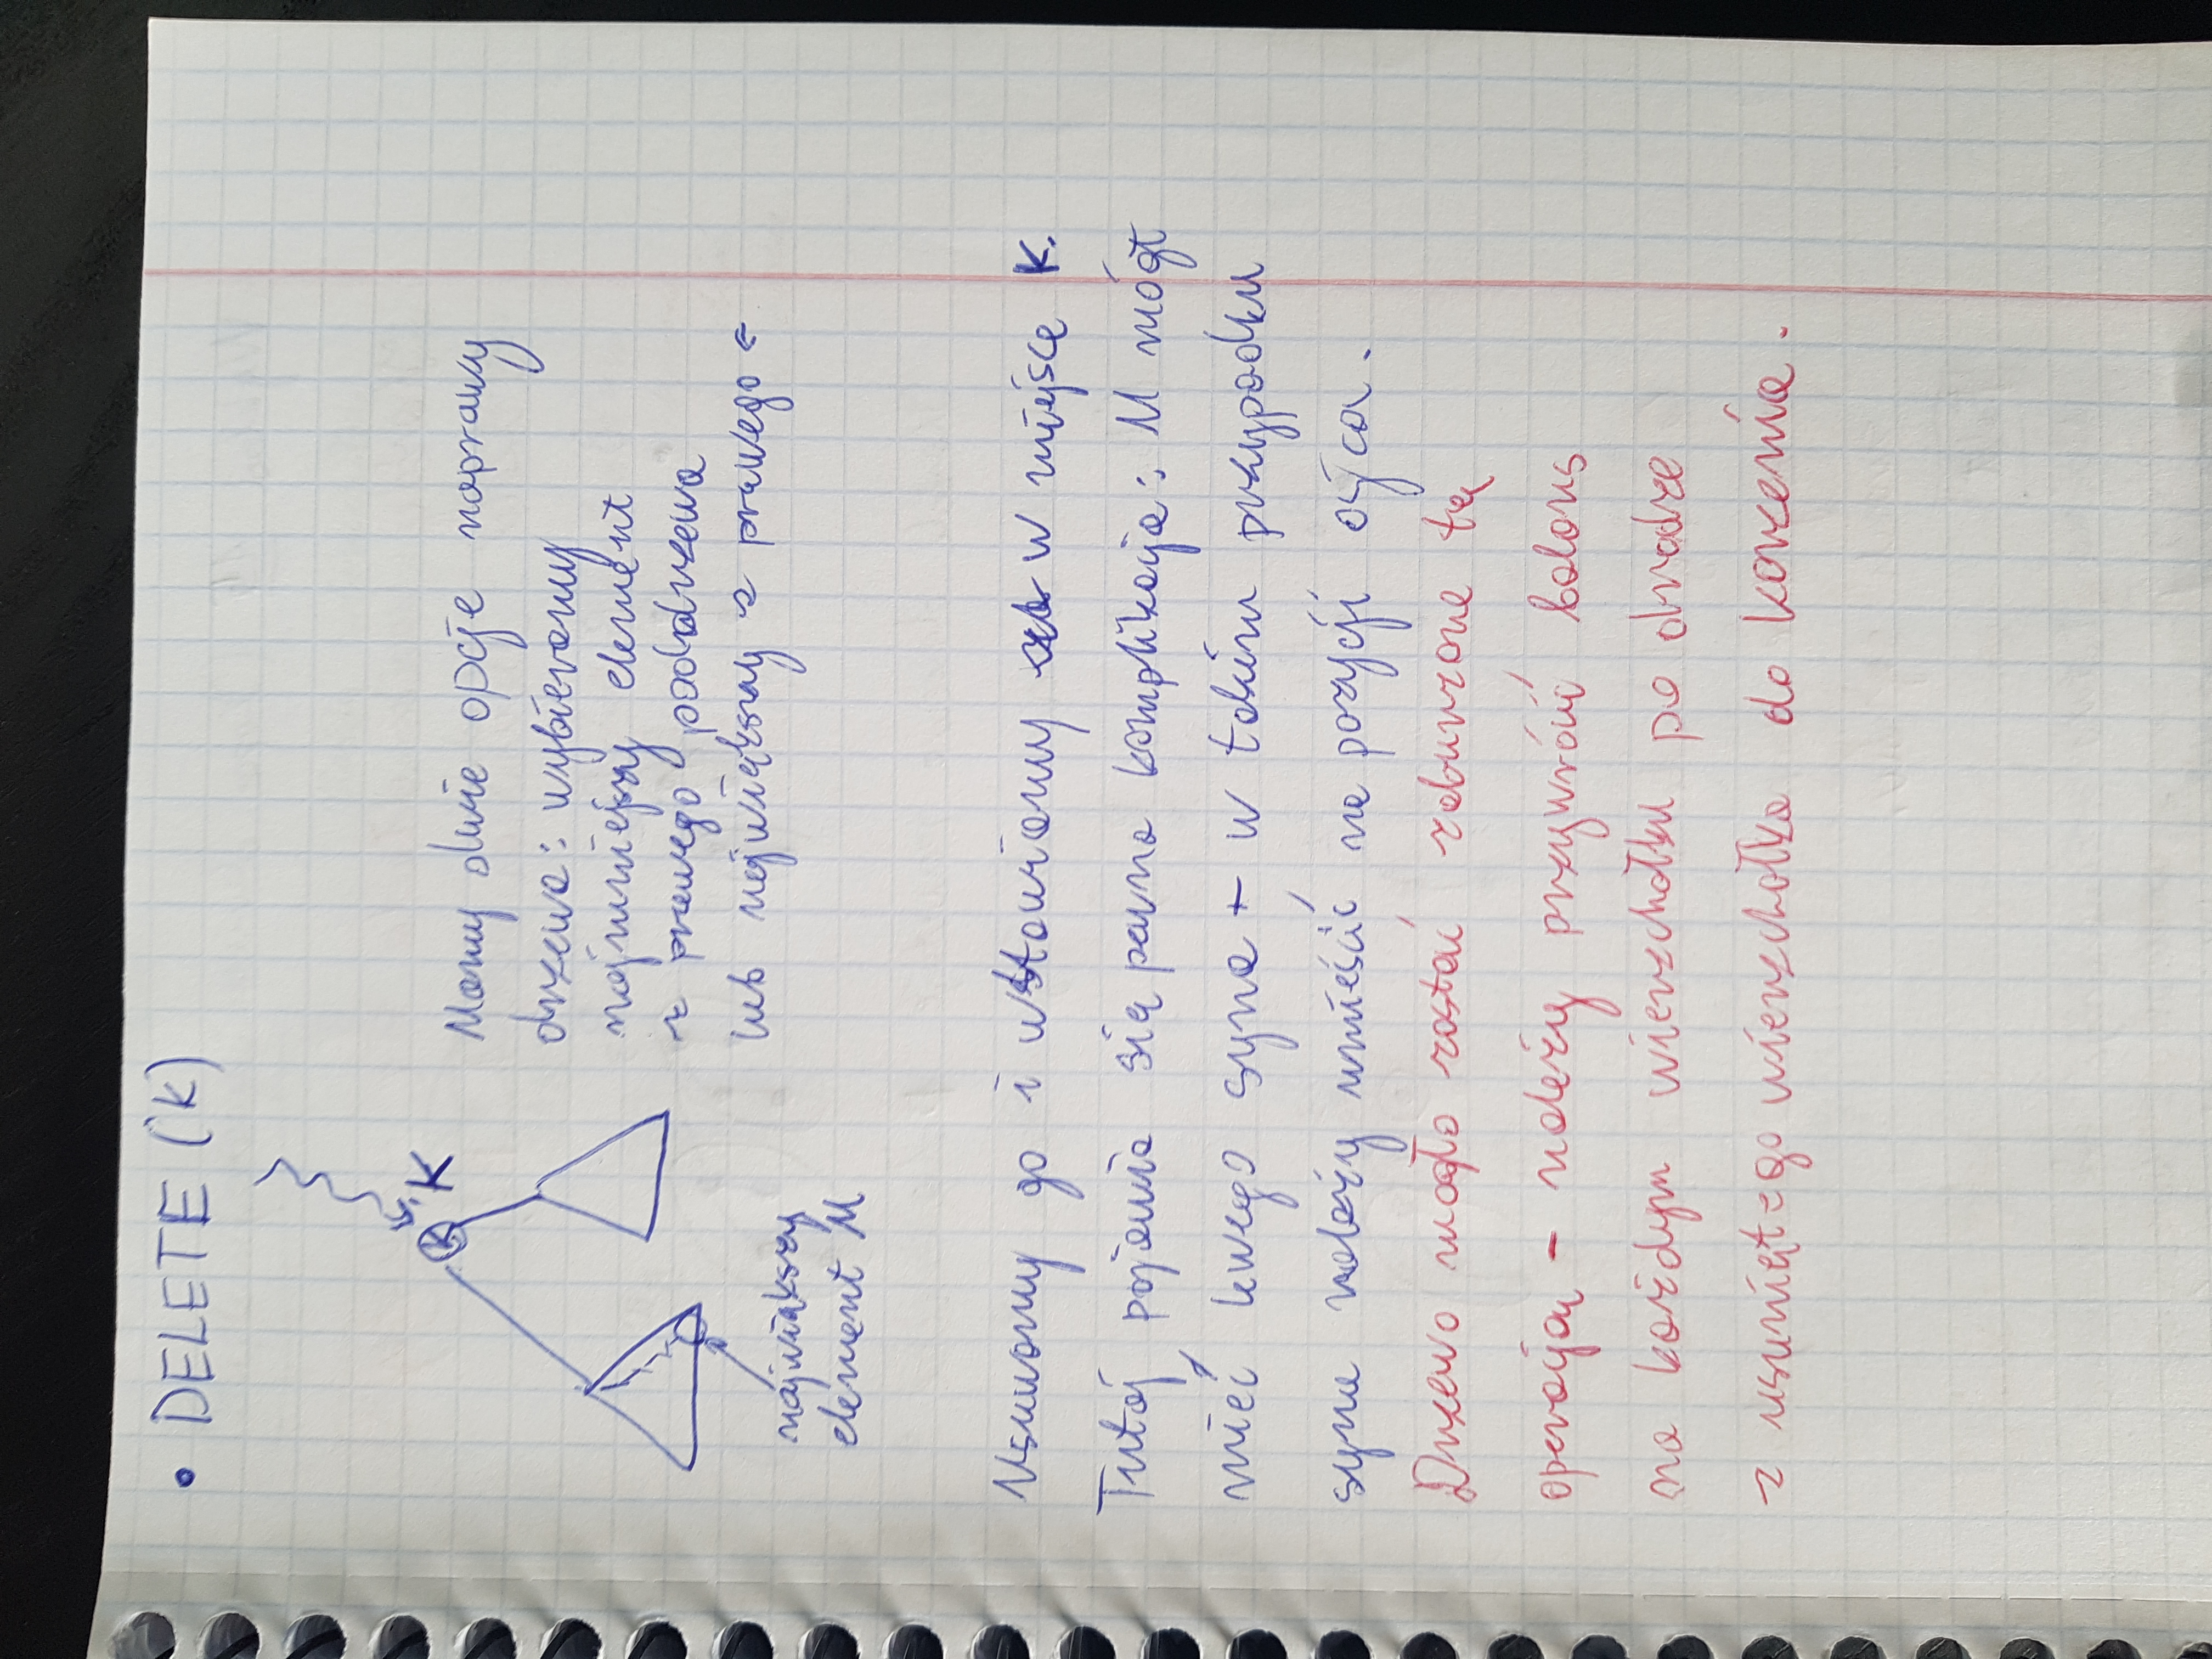 • DELETE (K)
K K
Mamy dwie opcje naprawy
drzewa: wybieramy
najmniejszy element
z prawego poddrzewa
lub największy z prawego
największy
element M
Usuwamy go i wstawiamy w miejsce K.
Tutaj pojawia się pewna komplikacja: M mógł
mieć lewego syna - w takim przypadku
syna należy umieścić na pozycji ojca.
Drzewo mogło zostać zaburzone tą
operacją - należy przywrócić balans
na każdym wierzchołku po drodze
z usuniętego wierzchołka do korzenia.